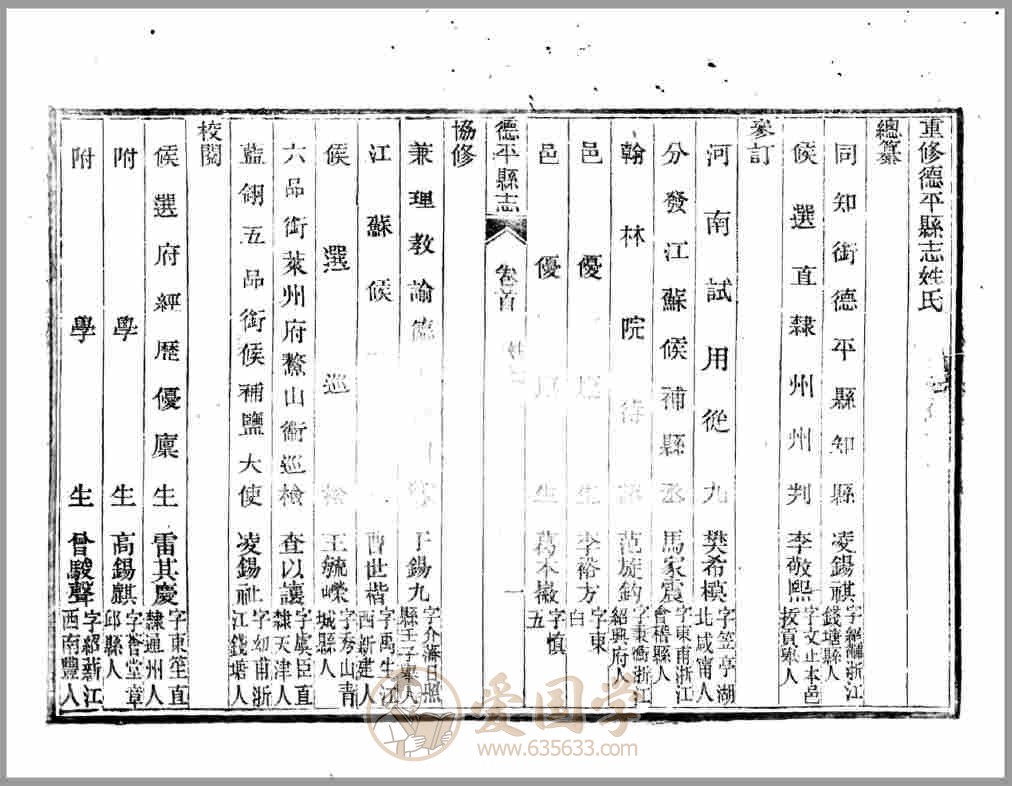 重修德平縣志姓氏
總纂
同知銜德平縣知縣凌錫祺字錢塘縣人浙江
候選直隸州州判李敬熙字文止本邑拔貢舉人
參訂
河南試用從九樊希模字笠亭湖北咸甯人
分發江蘇候補縣丞馬家震字東甫浙江會稽縣人
翰林院待范旋鈞字秉衡浙江紹興府人
邑優生李裕方字東白
邑優生葛本徽字慎五
德平縣志
卷首
一
協修
兼理教諭錫九縣壬子舉人日照
江蘇候曹世楷字禹生江西新建人
候選巡檢王毓嶸字秀山青城縣人
六品銜萊州府鰲山衞巡檢查以讓字虞臣直隸天津人
藍翎五品銜候補鹽大使凌錫祉字如甫浙江錢塘人
校閱
候選府經歷優廩生雷其慶字東笙直隸通州人
附學生高錫麒字薈堂章邱縣人
附學生曾駿聲字紹新江西南豐人
爱国学
www.635633.com